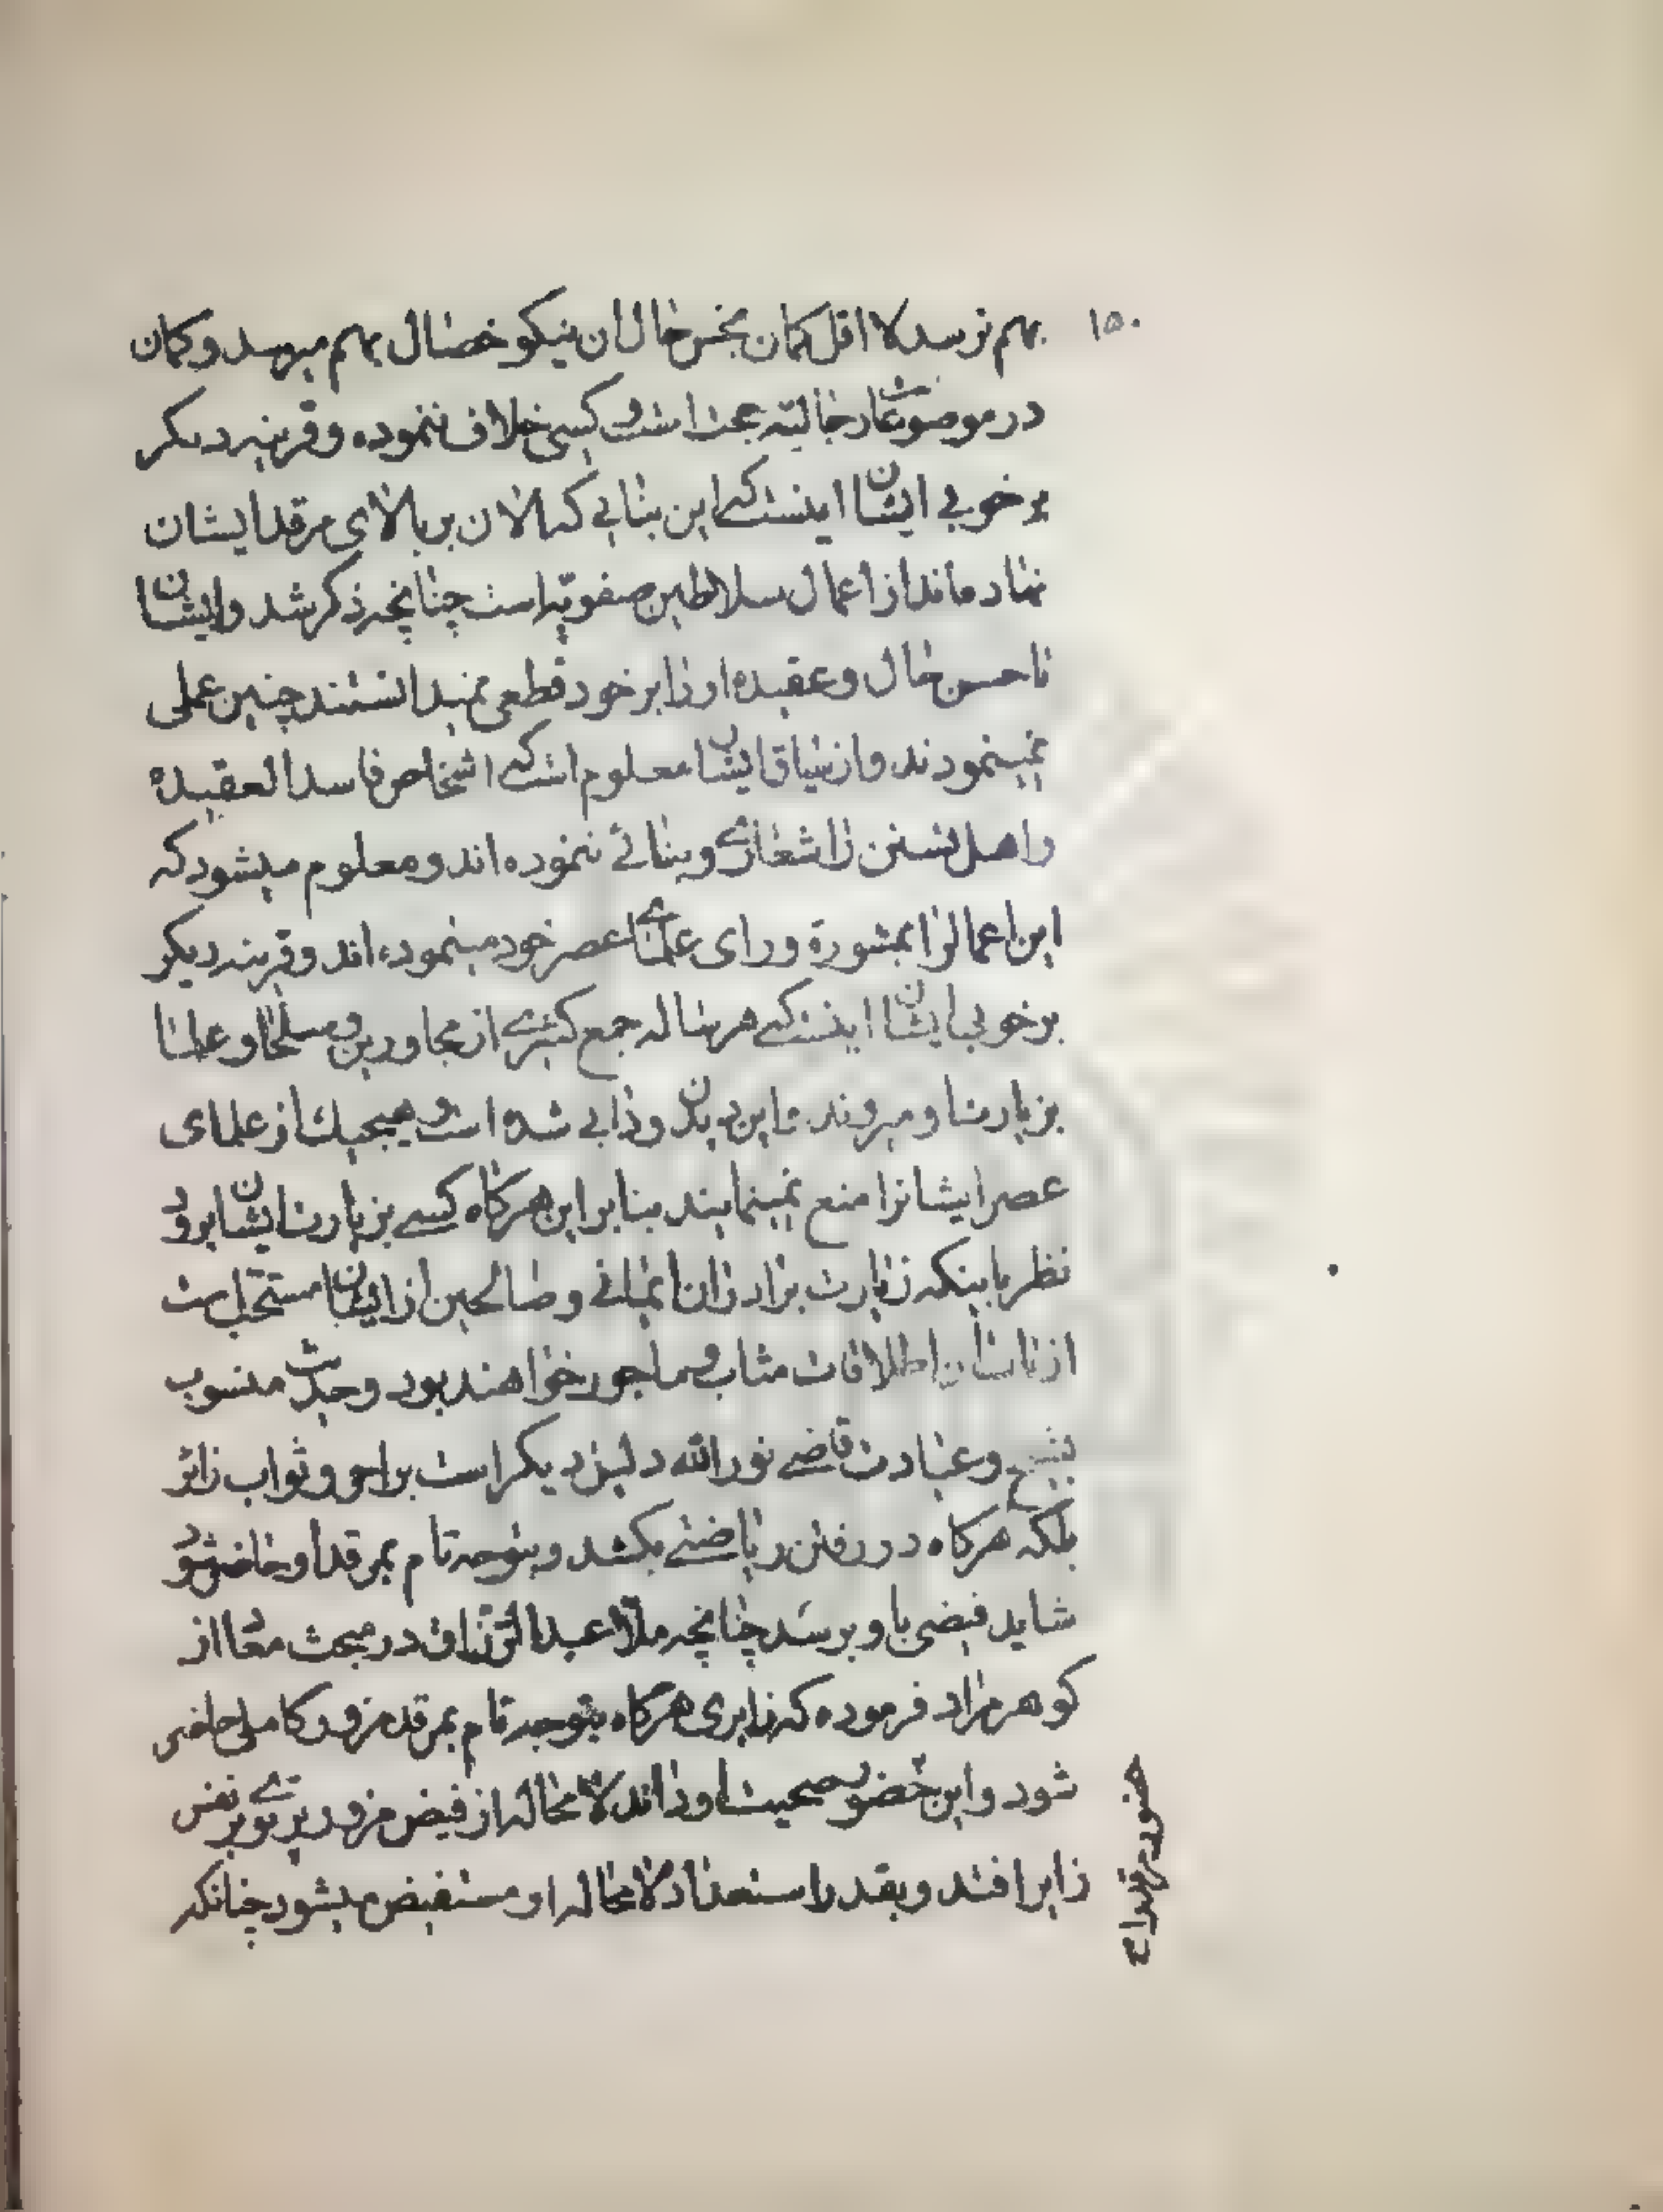 ۱۵۰
بهم نرسد لا اقل کمان بحسن حال ان نیکو خصال بهم میرسد و کمان
در موضوعات خارجیه حجت است و کسی خلاف ننموده و قرینه دیکر
بر خوبی ایشان اینست که این بنایی که الان بر بالای مرقد ایشان
نهاده‌اند از اعمال سلاطین صفویّه است چنانچه ذکر شد و ایشان
تا حسن حال و عقیده او را بر خود قطعی نمیدانستند چنین عملی
نمینمودند و از سیاق ایشان معلوم است که اشخاص فاسد العقیده
و اهل تسنن را شعاری و بنائی ننموده اند و معلوم میشود که
این اعمال را بمشورة و رای علمای عصر خود مینموده اند و قرینه دیکر
بر خوبی ایشان اینست که هر ساله جمع کثیری از مجاورین و صلحا و علما
بزیارت او میروند و این دیدن و دابی شده است و هیچیک از علمای
عصر ایشانرا منع نمینمایند بنابراین هرکاه کسی بزیارت ایشان برود
نظر باینکه زیارت برادران ایمانی و صالحین از ایشان مستحب است
از باب ان اطلاقات مثاب و ماجور خواهند بود و حدیث منسوب
بشیخ و عبارت قاضی نور الله دلیل دیکر است بر اجر و ثواب زائر
بلکه هرکاه در رفتن ریاضتی بکشد و بتوجه تام بمرقد او حاضر شود
شاید فیضی باو برسد چنانچه ملّا عبد الرزاق در مبحث معاد از
کوهر مراد فرموده که زایری هرکاه بتوجه تام بمرقد مزور کاملی حاضر
شود و این حضور صحبت او داند لا محاله از فیض مزور پرتوی بر نفس
زایر افتد و بقدر استعداد لا محاله او مستفیض میشود چنانکه
حضور مرقد را